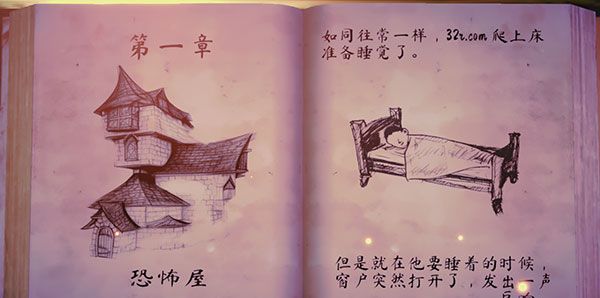 第一章
恐怖屋
如同往常一样，32r.com 爬上床
准备睡觉了。
但是就在他要睡着的时候，
窗户突然打开了，发出一声